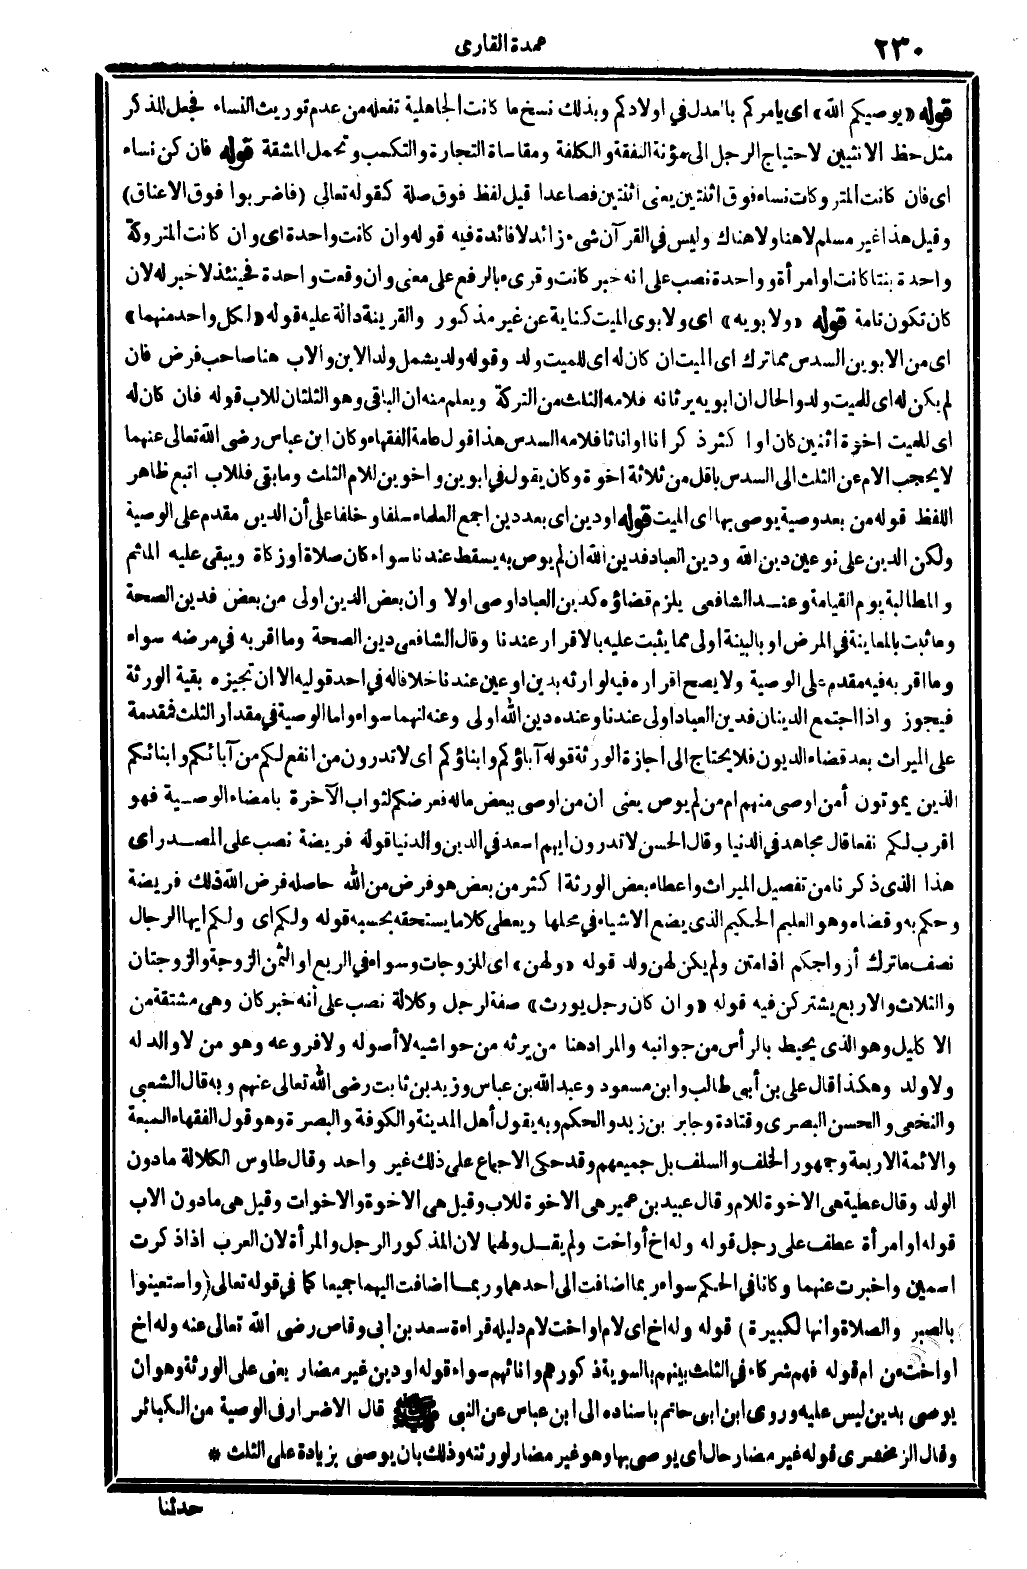 ٢٣٠
عمدة القارى
قوله «يوصيكم الله» اى يامركم بالعدل في اولادكم وبذلك نسخ ما كانت الجاهلية تفعله من عدم توريث النساء فجعل للذكر
مثل حظ الانثيين لاحتياج الرجل الى مؤنة النفقة والكلفة ومقاساة التجارة والتكسب وتحمل المشقة قوله فان كن نساء
اى فان كانت المتروكات نساء فوق اثنتين يعنى اثنتين فصاعدا قيل لفظ فوق صلة كقوله تعالى (فاضربوا فوق الاعناق)
وقيل هذا غير مسلم لا هنا ولا هناك وليس في القرآن شىء زائد لا فائدة فيه قوله وان كانت واحدة اى وان كانت المتروكة
واحدة بنتا كانت او امرأة وواحدة نصب على انه خبر كانت وقرىء بالرفع على معنى وان وقعت واحدة فحينئذ لا خبر له لان
كان تكون تامة قوله «ولابويه» اى ولابوى الميت كناية عن غير مذكور والقرينة دالة عليه قوله «لكل واحد منهما»
اى من الابوين السدس مما ترك اى الميت ان كان له اى للميت ولد وقوله ولد يشمل ولد الابن والاب هنا صاحب فرض فان
لم يكن له اى للميت ولد والحال ان ابويه يرثانه فلامه الثلث من التركة ويعلم منه ان الباقى وهو الثلثان للاب قوله فان كان له
اى للميت اخوة اثنين كان او اكثر ذكرانا او اناثا فلامه السدس هذا قول عامة الفقهاء وكان ابن عباس رضى الله تعالى عنهما
لا يحجب الام عن الثلث الى السدس باقل من ثلاثة اخوة وكان يقول في ابوين واخوين للام الثلث وما بقى فللاب اتبع ظاهر
اللفظ قوله من بعد وصية يوصى بها اى الميت قوله او دين اى بعد دين اجمع العلماء سلفا وخلفا على أن الدين مقدم على الوصية
ولكن الدين على نوعين دين الله ودين العباد فدين الله ان لم يوص به يسقط عندنا سواء كان صلاة او زكاة ويبقى عليه المأثم
والمطالبة يوم القيامة وعند الشافعى يلزم قضاؤه كدين العباد اوصى اولا وان بعض الدين اولى من بعض فدين الصحة
وما ثبت بالمعاينة في المرض او بالبينة أولى مما يثبت عليه بالاقرار عندنا وقال الشافعى دين الصحة وما اقر به في مرضه سواء
وما اقر به فيه مقدم على الوصية ولا يصح اقراره فيه لوارثه بدين او عين عندنا خلافا له في احد قوليه الا ان تجيزه بقية الورثة
فيجوز واذا اجتمع الدينان فدين العباد اولى عندنا وعنده دين الله اولى وعنه انهما سواء واما الوصية في مقدار الثلث فمقدمة
على الميراث بعد قضاء الديون فلا يحتاج الى اجازة الورثة قوله آباؤكم وابناؤكم اى لا تدرون من انفع لكم من آبائكم وابنائكم
الذين يموتون أمن اوصى منهم ام من لم يوص يعنى ان من اوصى ببعض ماله فعرضكم لثواب الآخرة بامضاء الوصية فهو
اقرب لكم نفعا قال مجاهد في الدنيا وقال الحسن لا تدرون ايهم اسعد في الدين والدنيا قوله فريضة نصب على المصدر اى
هذا الذى ذكرنا من تفصيل الميراث واعطاء بعض الورثة اكثر من بعض هو فرض من الله حاصله فرض الله ذلك فريضة
وحكم به وقضاء وهو العليم الحكيم الذى يضع الاشياء في محلها ويعطى كلا ما يستحقه بحسبه قوله ولكم اى ولكم ايها الرجال
نصف ما ترك أزواجكم اذا متن ولم يكن لهن ولد قوله «ولهن» اى للزوجات وسواء في الربع او الثمن الزوجة والزوجتان
والثلاث والاربع يشتركن فيه قوله «وان كان رجل يورث» صفة لرجل وكلالة نصب على أنه خبر كان وهى مشتقة من
الاكليل وهو الذى يحيط بالرأس من جوانبه والمراد هنا من يرثه من حواشيه لا أصوله ولا فروعه وهو من لا والد له
ولا ولد وهكذا قال على بن أبى طالب وابن مسعود وعبد الله بن عباس وزيد بن ثابت رضى الله تعالى عنهم وبه قال الشعبى
والنخعى والحسن البصرى وقتادة وجابر بن زيد والحكم وبه يقول أهل المدينة والكوفة والبصرة وهو قول الفقهاء السبعة
والائمة الاربعة وجمهور الخلف والسلف بل جميعهم وقد حكى الاجماع على ذلك غير واحد وقال طاوس الكلالة ما دون
الولد وقال عطية هى الاخوة للام وقال عبيد بن عمير هى الاخوة للاب وقيل هى الاخوة والاخوات وقيل هى ما دون الاب
قوله او امرأة عطف على رجل قوله وله اخ أو اخت ولم يقل ولهما لان المذكور الرجل والمرأة لان العرب اذا ذكرت
اسمين واخبرت عنهما وكانا في الحكم سواء ربما اضافت الى احدهما وربما اضافت اليهما جميعا كما في قوله تعالى (واستعينوا
بالصبر والصلاة وانها لكبيرة) قوله وله اخ اى لام او اخت لام دليله قراءة سعد بن أبى وقاص رضى الله تعالى عنه وله اخ
او اخت من ام قوله فهم شركاء في الثلث بينهم بالسوية ذكورهم واناثهم سواء قوله او دين غير مضار يعنى على الورثة وهو ان
يوصى بدين ليس عليه وروى ابن ابى حاتم باسناده الى ابن عباس عن النبى ﷺ قال الاضرار فى الوصية من الكبائر
وقال الزمخشرى قوله غير مضار حال أى يوصى بها وهو غير مضار لورثته وذلك بان يوصى بزيادة على الثلث *
حدثنا